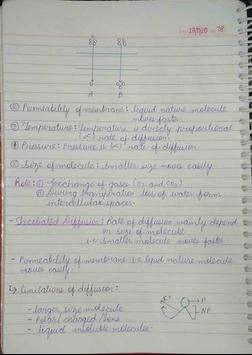 A B
② Permeability of membrane: liquid nature molecule
moves faster.
③ Temperature: Temperature is directly proportional
(∝) rate of diffusion.
④ Pressure: Pressure is (∝) rate of diffusion
⑤ Size of molecule: Smaller size moves easily.
Role: ① Exchange of gases (O2 and CO2)
② During transpiration loss of water form
intercellular spaces.
- Facilitated Diffusion: Rate of diffusion mainly depend
on size of molecule
i.e. smaller molecule moves faster.
- Permeability of membrane i.e. lipid nature molecule
moves easily.
↳ Limitations of diffusion:
- larger size molecule
- Polar/charged/ions
- liquid insoluble molecules.
P
NP